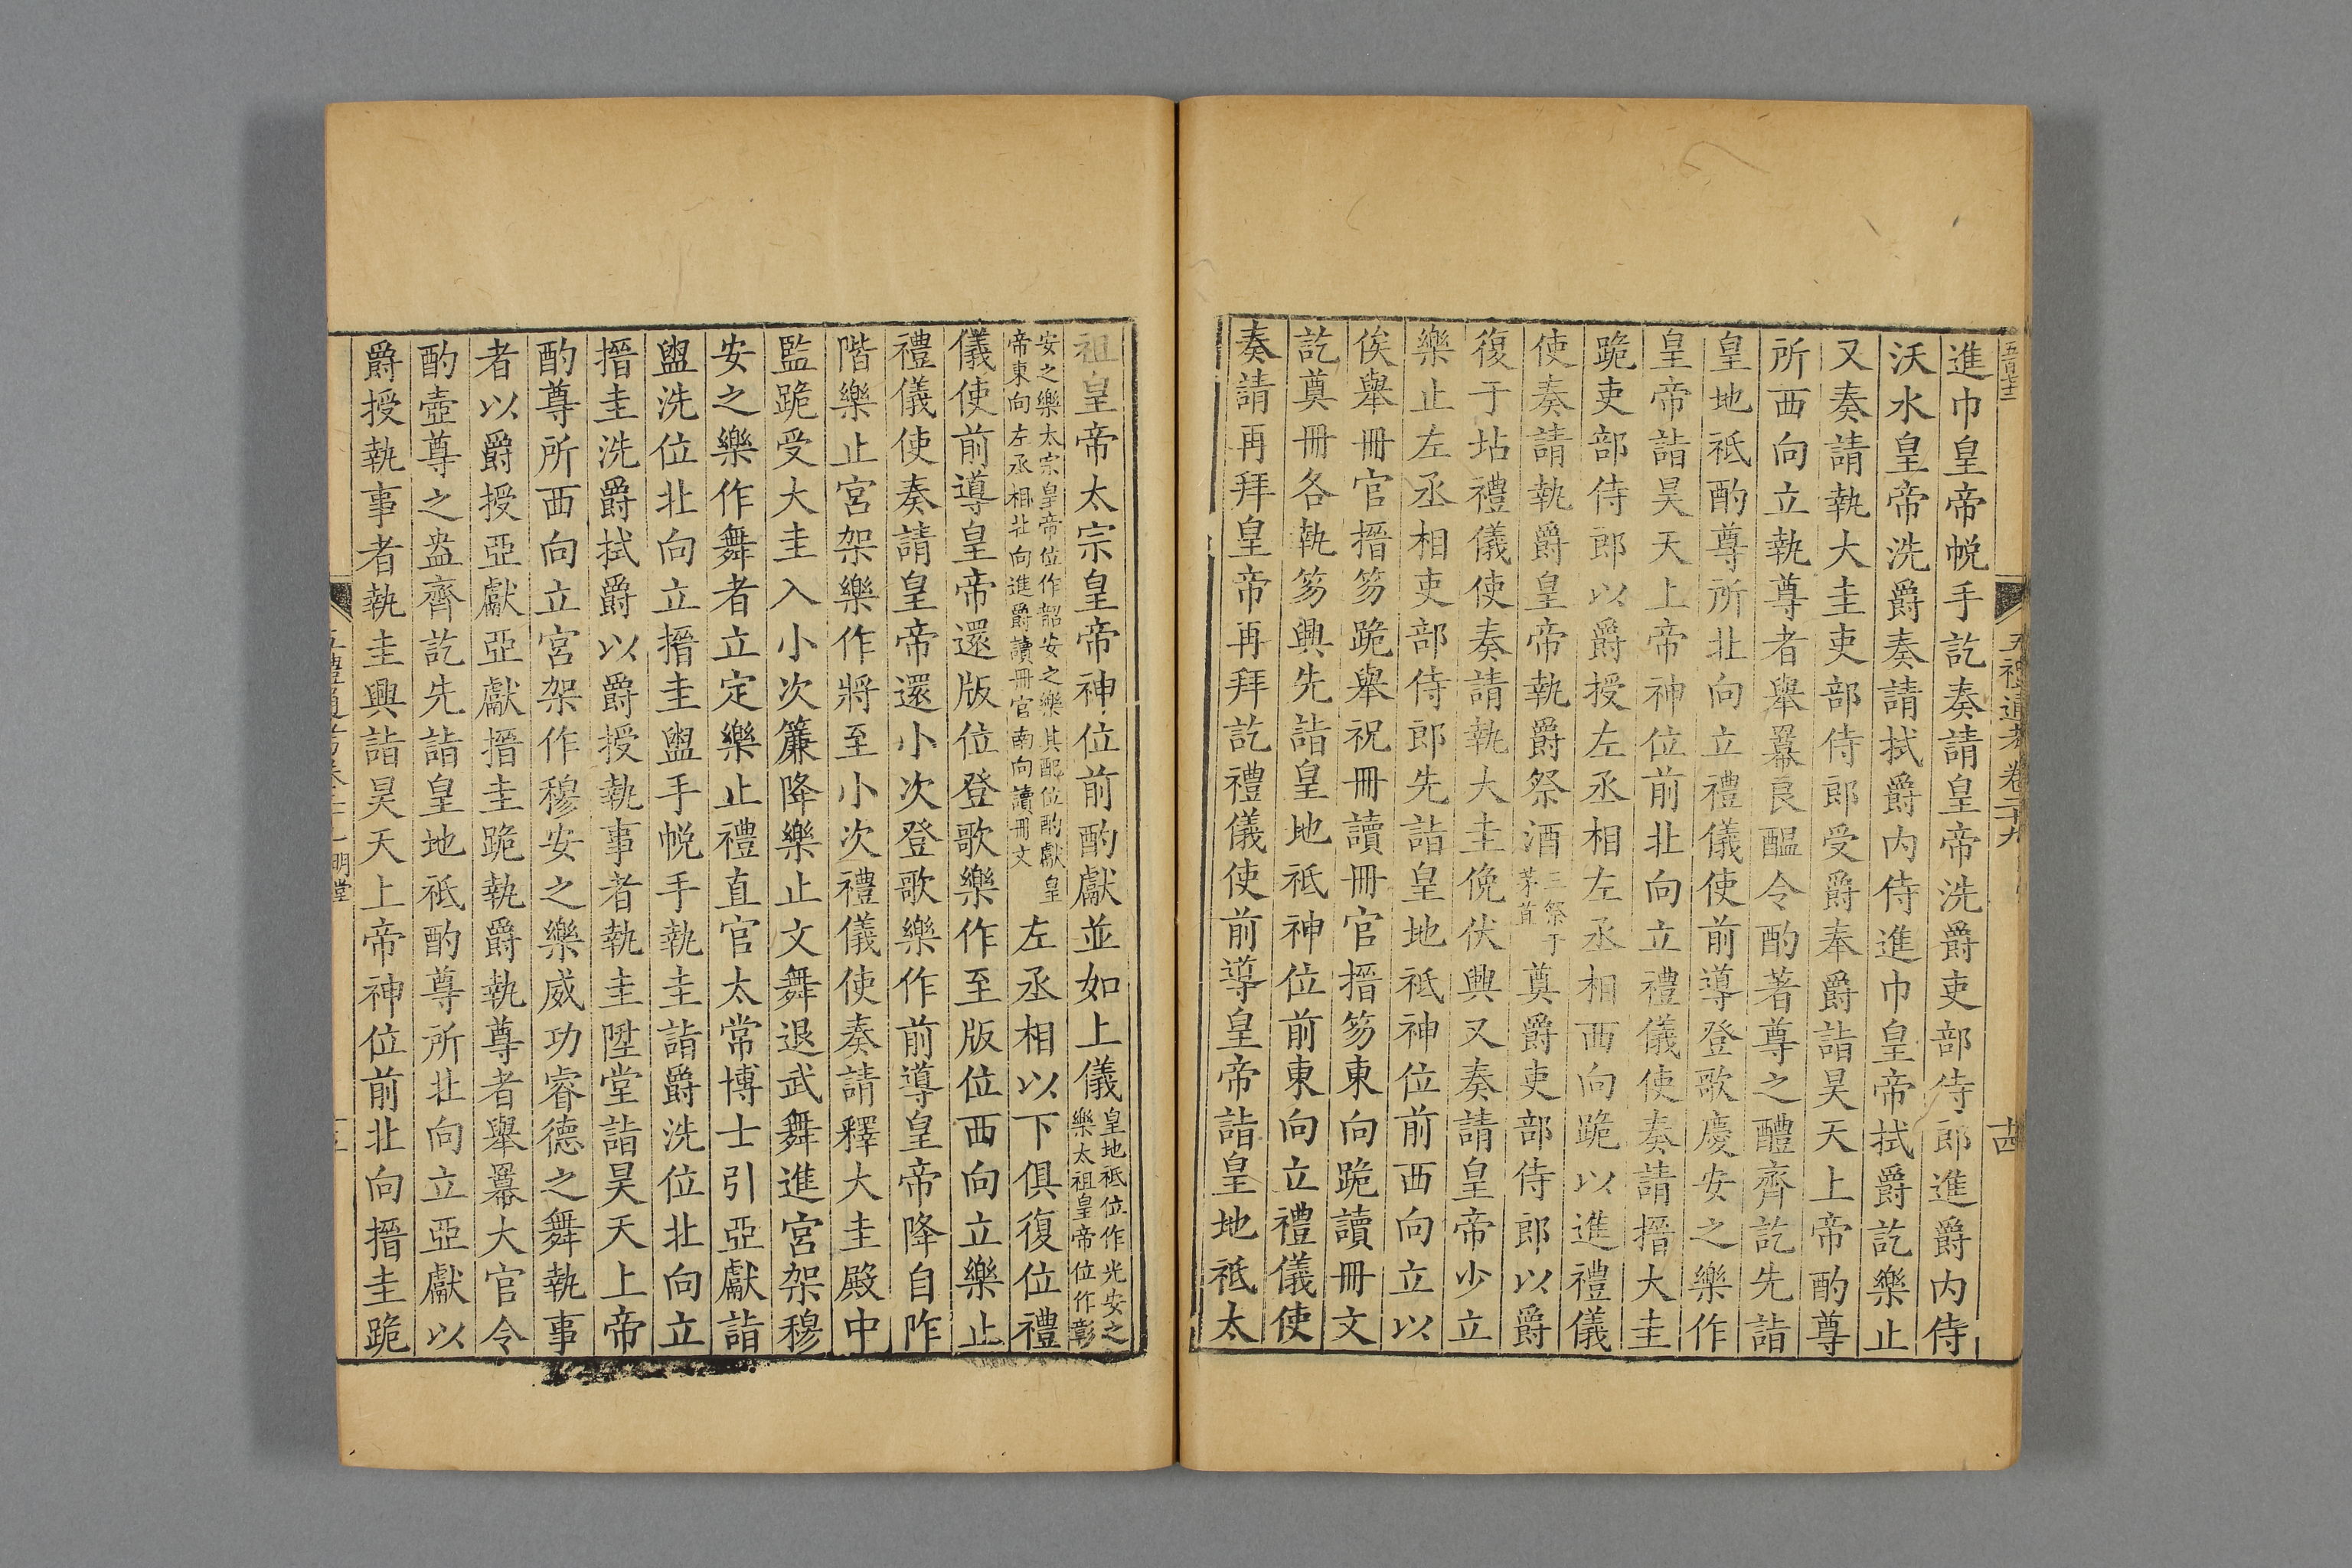 五禮通考卷二十九
進巾皇帝帨手訖奏請皇帝洗爵吏部侍郎進爵内侍
沃水皇帝洗爵奏請拭爵内侍進巾皇帝拭爵訖樂止
又奏請執大圭吏部侍郎受爵奉爵詣昊天上帝酌尊
所西向立執尊者舉羃良醞令酌著尊之醴齊訖先詣
皇地祇酌尊所北向立禮儀使前導登歌慶安之樂作
皇帝詣昊天上帝神位前北向立禮儀使奏請搢大圭
跪吏部侍郎以爵授左丞相左丞相西向跪以進禮儀
使奏請執爵皇帝執爵祭酒三祭于茅苴奠爵吏部侍郎以爵
復于坫禮儀使奏請執大圭俛伏興又奏請皇帝少立
樂止左丞相吏部侍郎先詣皇地祇神位前西向立以
俟舉冊官搢笏跪舉祝冊讀冊官搢笏東向跪讀冊文
訖奠冊各執笏興先詣皇地祇神位前東向立禮儀使
奏請再拜皇帝再拜訖禮儀使前導皇帝詣皇地祇太
祖皇帝太宗皇帝神位前酌獻並如上儀皇地祇位作光安之樂太祖皇帝位作彰
安之樂太宗皇帝位作韶安之樂其配位酌獻皇帝東向左丞相北向進爵讀冊官南向讀冊文左丞相以下俱復位禮
儀使前導皇帝還版位登歌樂作至版位西向立樂止
禮儀使奏請皇帝還小次登歌樂作前導皇帝降自阼
階樂止宮架樂作將至小次禮儀使奏請釋大圭殿中
監跪受大圭入小次簾降樂止文舞退武舞進宮架穆
安之樂作舞者立定樂止禮直官太常博士引亞獻詣
盥洗位北向立搢圭盥手帨手執圭詣爵洗位北向立
搢圭洗爵拭爵以爵授執事者執圭陞堂詣昊天上帝
酌尊所西向立宮架作穆安之樂威功睿德之舞執事
者以爵授亞獻亞獻搢圭跪執爵執尊者舉羃大官令
酌壺尊之盎齊訖先詣皇地祇酌尊所北向立亞獻以
爵授執事者執圭興詣昊天上帝神位前北向搢圭跪
明堂